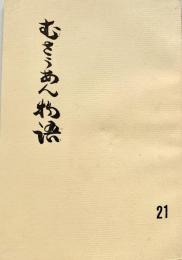 むさうあん物語
21